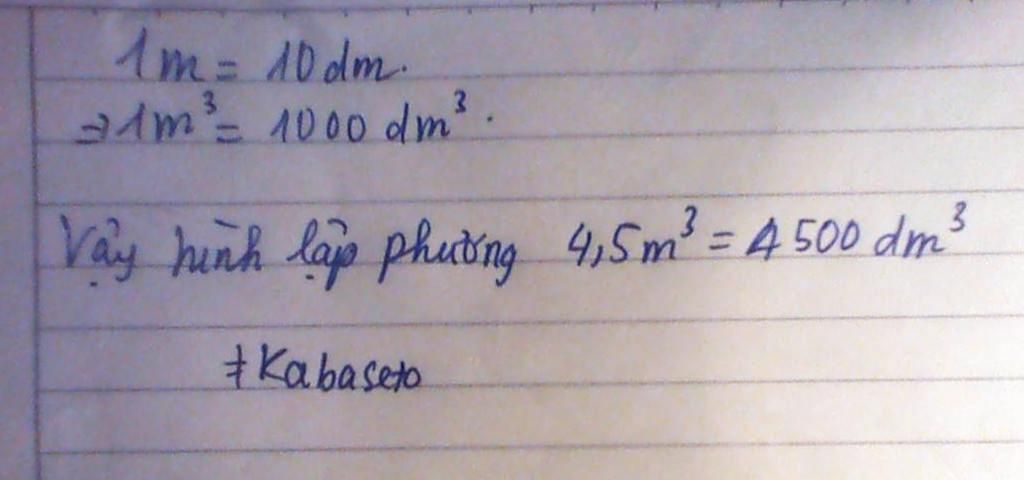 1m = 10 dm.
⇒ 1m³ = 1000 dm³.
Vậy hình lập phương 4,5m³ = 4500 dm³
#Kabaseto